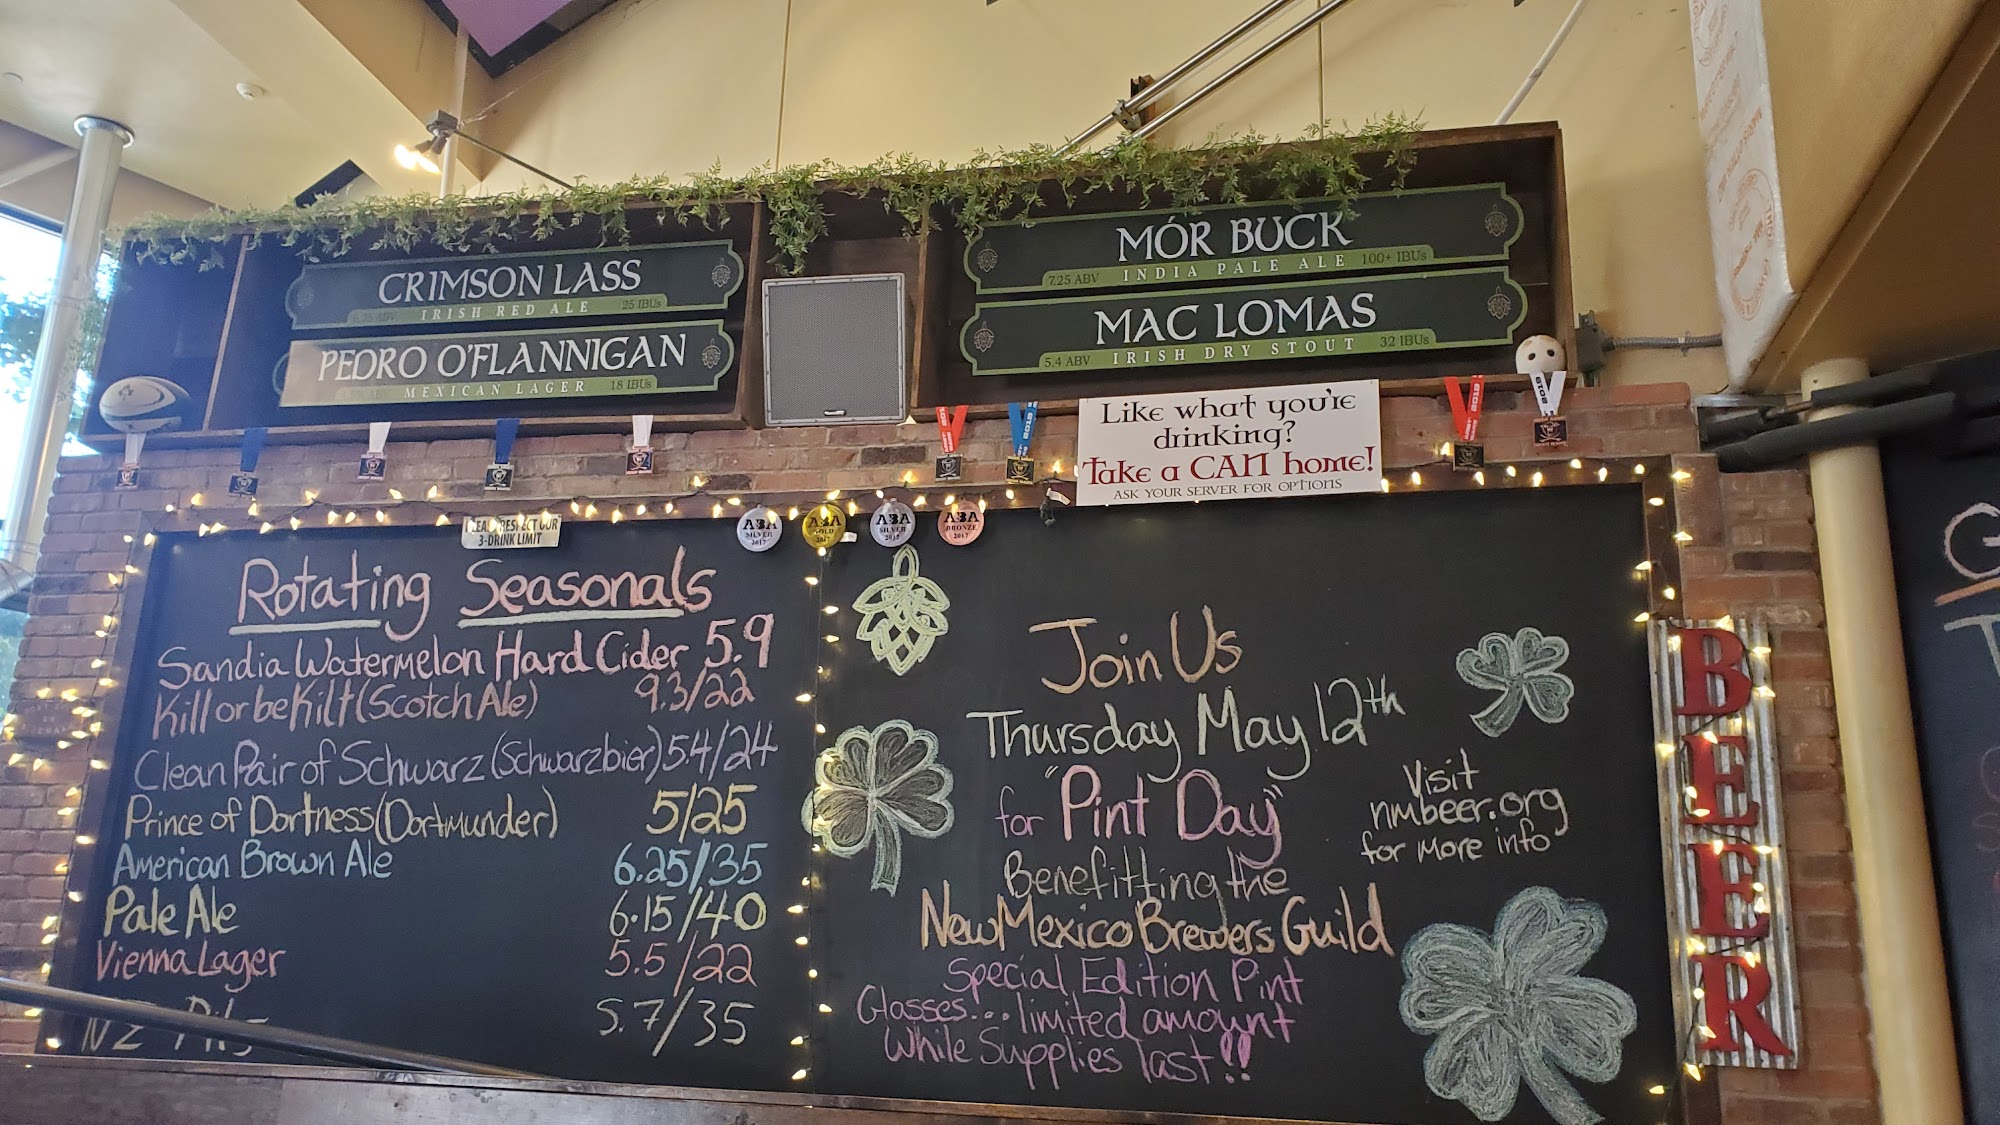 CRIMSON LASS
IRISH RED ALE 25 IBUs
PEDRO O'FLANNIGAN
MEXICAN LAGER 18 IBUs
MÓR BUCK
7.25 ABV INDIA PALE ALE 100+ IBUs
MAC LOMAS
5.4 ABV IRISH DRY STOUT 32 IBUs
Like what you're
drinking?
Take a CAN home!
ASK YOUR SERVER FOR OPTIONS
PLEASE RESPECT OUR
3-DRINK LIMIT
ABA
SILVER
2017
ABA
GOLD
2017
ABA
SILVER
ABA
BRONZE
2017
Rotating Seasonals
Sandia Watermelon Hard Cider 5.9
Kill or be Kilt (Scotch Ale) 9.3/22
Clean Pair of Schwarz (Schwarzbier) 5.4/24
Prince of Dortness (Dortmunder) 5/25
American Brown Ale 6.25/35
Pale Ale 6.15/40
Vienna Lager 5.5/22
NZ Pils 5.7/35
Join Us
Thursday May 12th
for "Pint Day"
Benefitting the
New Mexico Brewers Guild
Special Edition Pint
Glasses... limited amount
While Supplies last!!
Visit
nmbeer.org
for more info
BEER